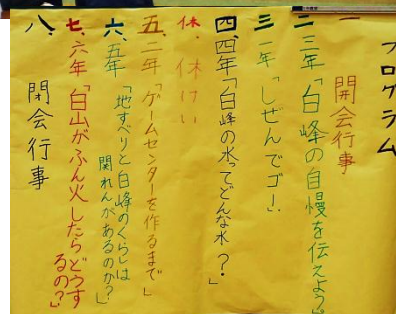 プログラム
一 開会行事
二 三年「白峰の自慢を伝えよう」
三 一年「しぜんでゴー」
四 四年「白峰の水ってどんな水？」
休 休けい
五 二年「ゲームセンターを作るまで」
六 五年「地すべりと白峰のくらしは
関れんがあるのか？」
七 六年「白山がふん火したらどうす
るの？」
八 閉会行事